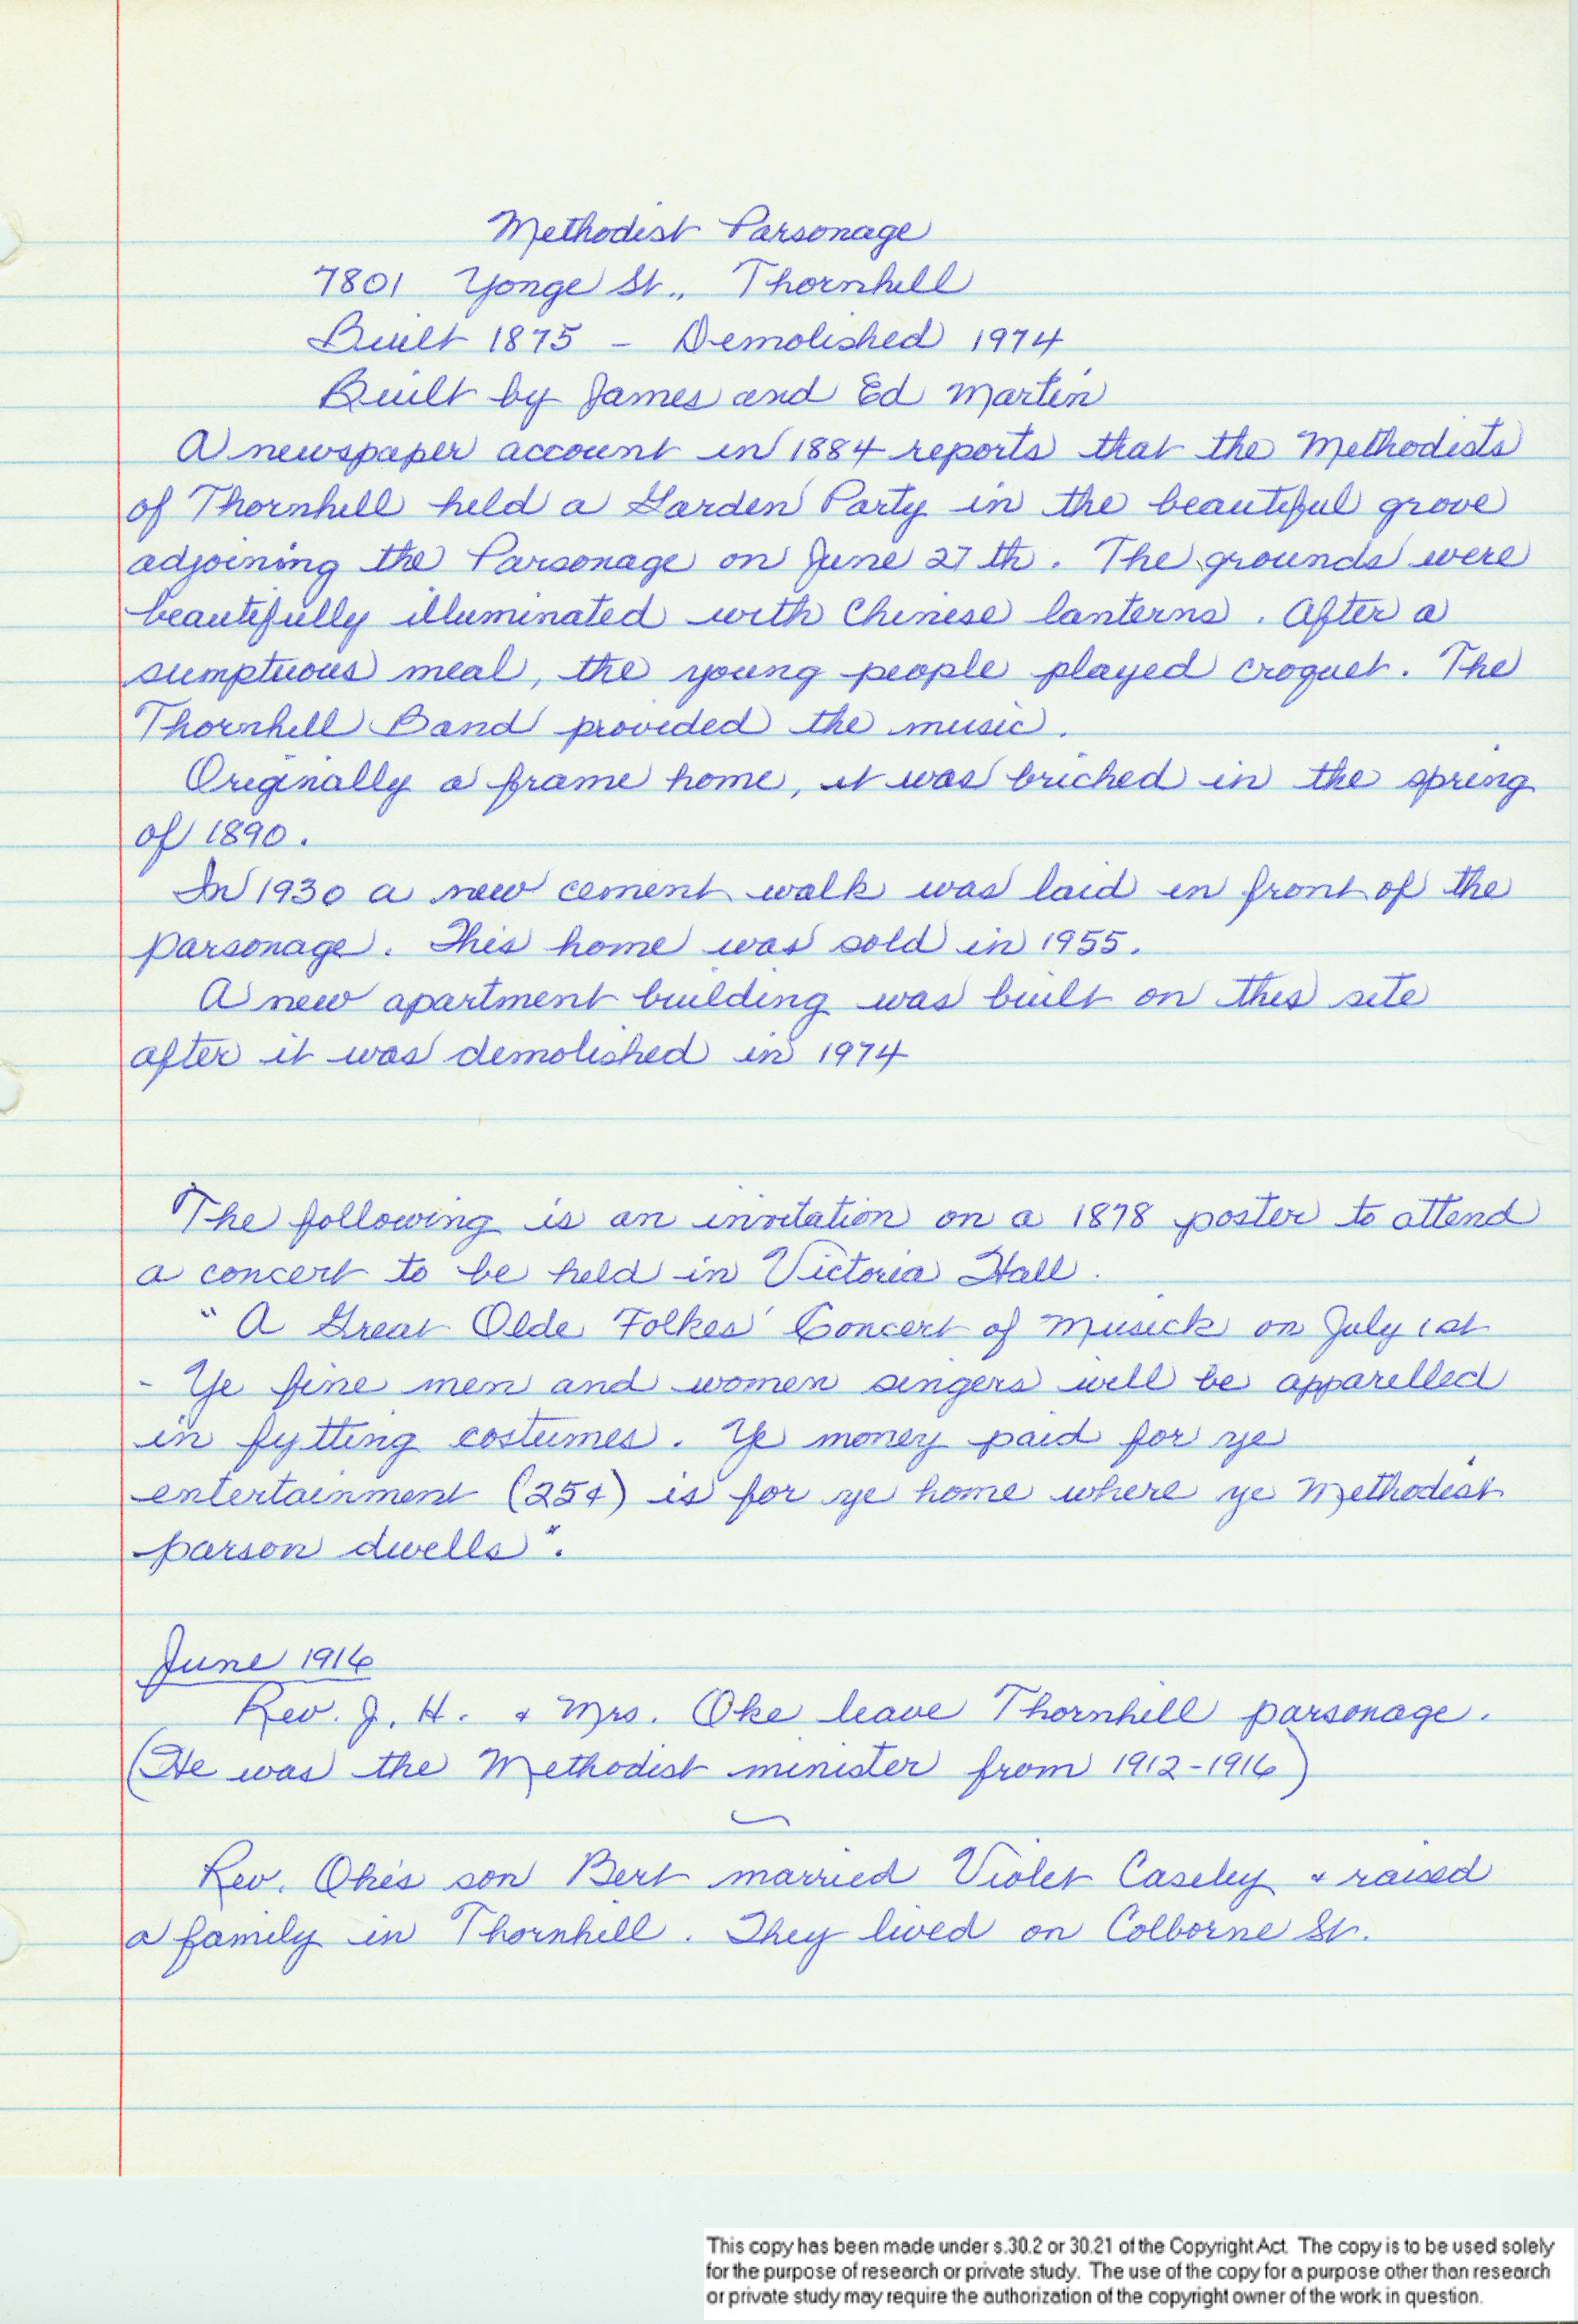 Methodist Parsonage
7801 Yonge St., Thornhill
Built 1875 - Demolished 1974
Built by James and Ed Martin
A newspaper account in 1884 reports that the Methodists
of Thornhill held a Garden Party in the beautiful grove
adjoining the Parsonage on June 27th. The grounds were
beautifully illuminated with Chinese lanterns. After a
sumptuous meal, the young people played croquet. The
Thornhill Band provided the music.
Originally a frame home, it was bricked in the spring
of 1890.
In 1930 a new cement walk was laid in front of the
parsonage. This home was sold in 1955.
A new apartment building was built on this site
after it was demolished in 1974
The following is an invitation on a 1878 poster to attend
a concert to be held in Victoria Hall.
"A Great Olde Folkes' Concert of Musick on July 1st
- Ye fine men and women singers will be apparelled
in fytting costumes. Ye money paid for ye
entertainment (25¢) is for ye home where ye Methodist
parson dwells".
June 1916
Rev. J. H. & Mrs. Oke leave Thornhill parsonage.
(He was the Methodist minister from 1912-1916)
Rev. Oke's son Bert married Violet Caseley & raised
a family in Thornhill. They lived on Colborne St.
This copy has been made under s.30.2 or 30.21 of the Copyright Act. The copy is to be used solely
for the purpose of research or private study. The use of the copy for a purpose other than research
or private study may require the authorization of the copyright owner of the work in question.